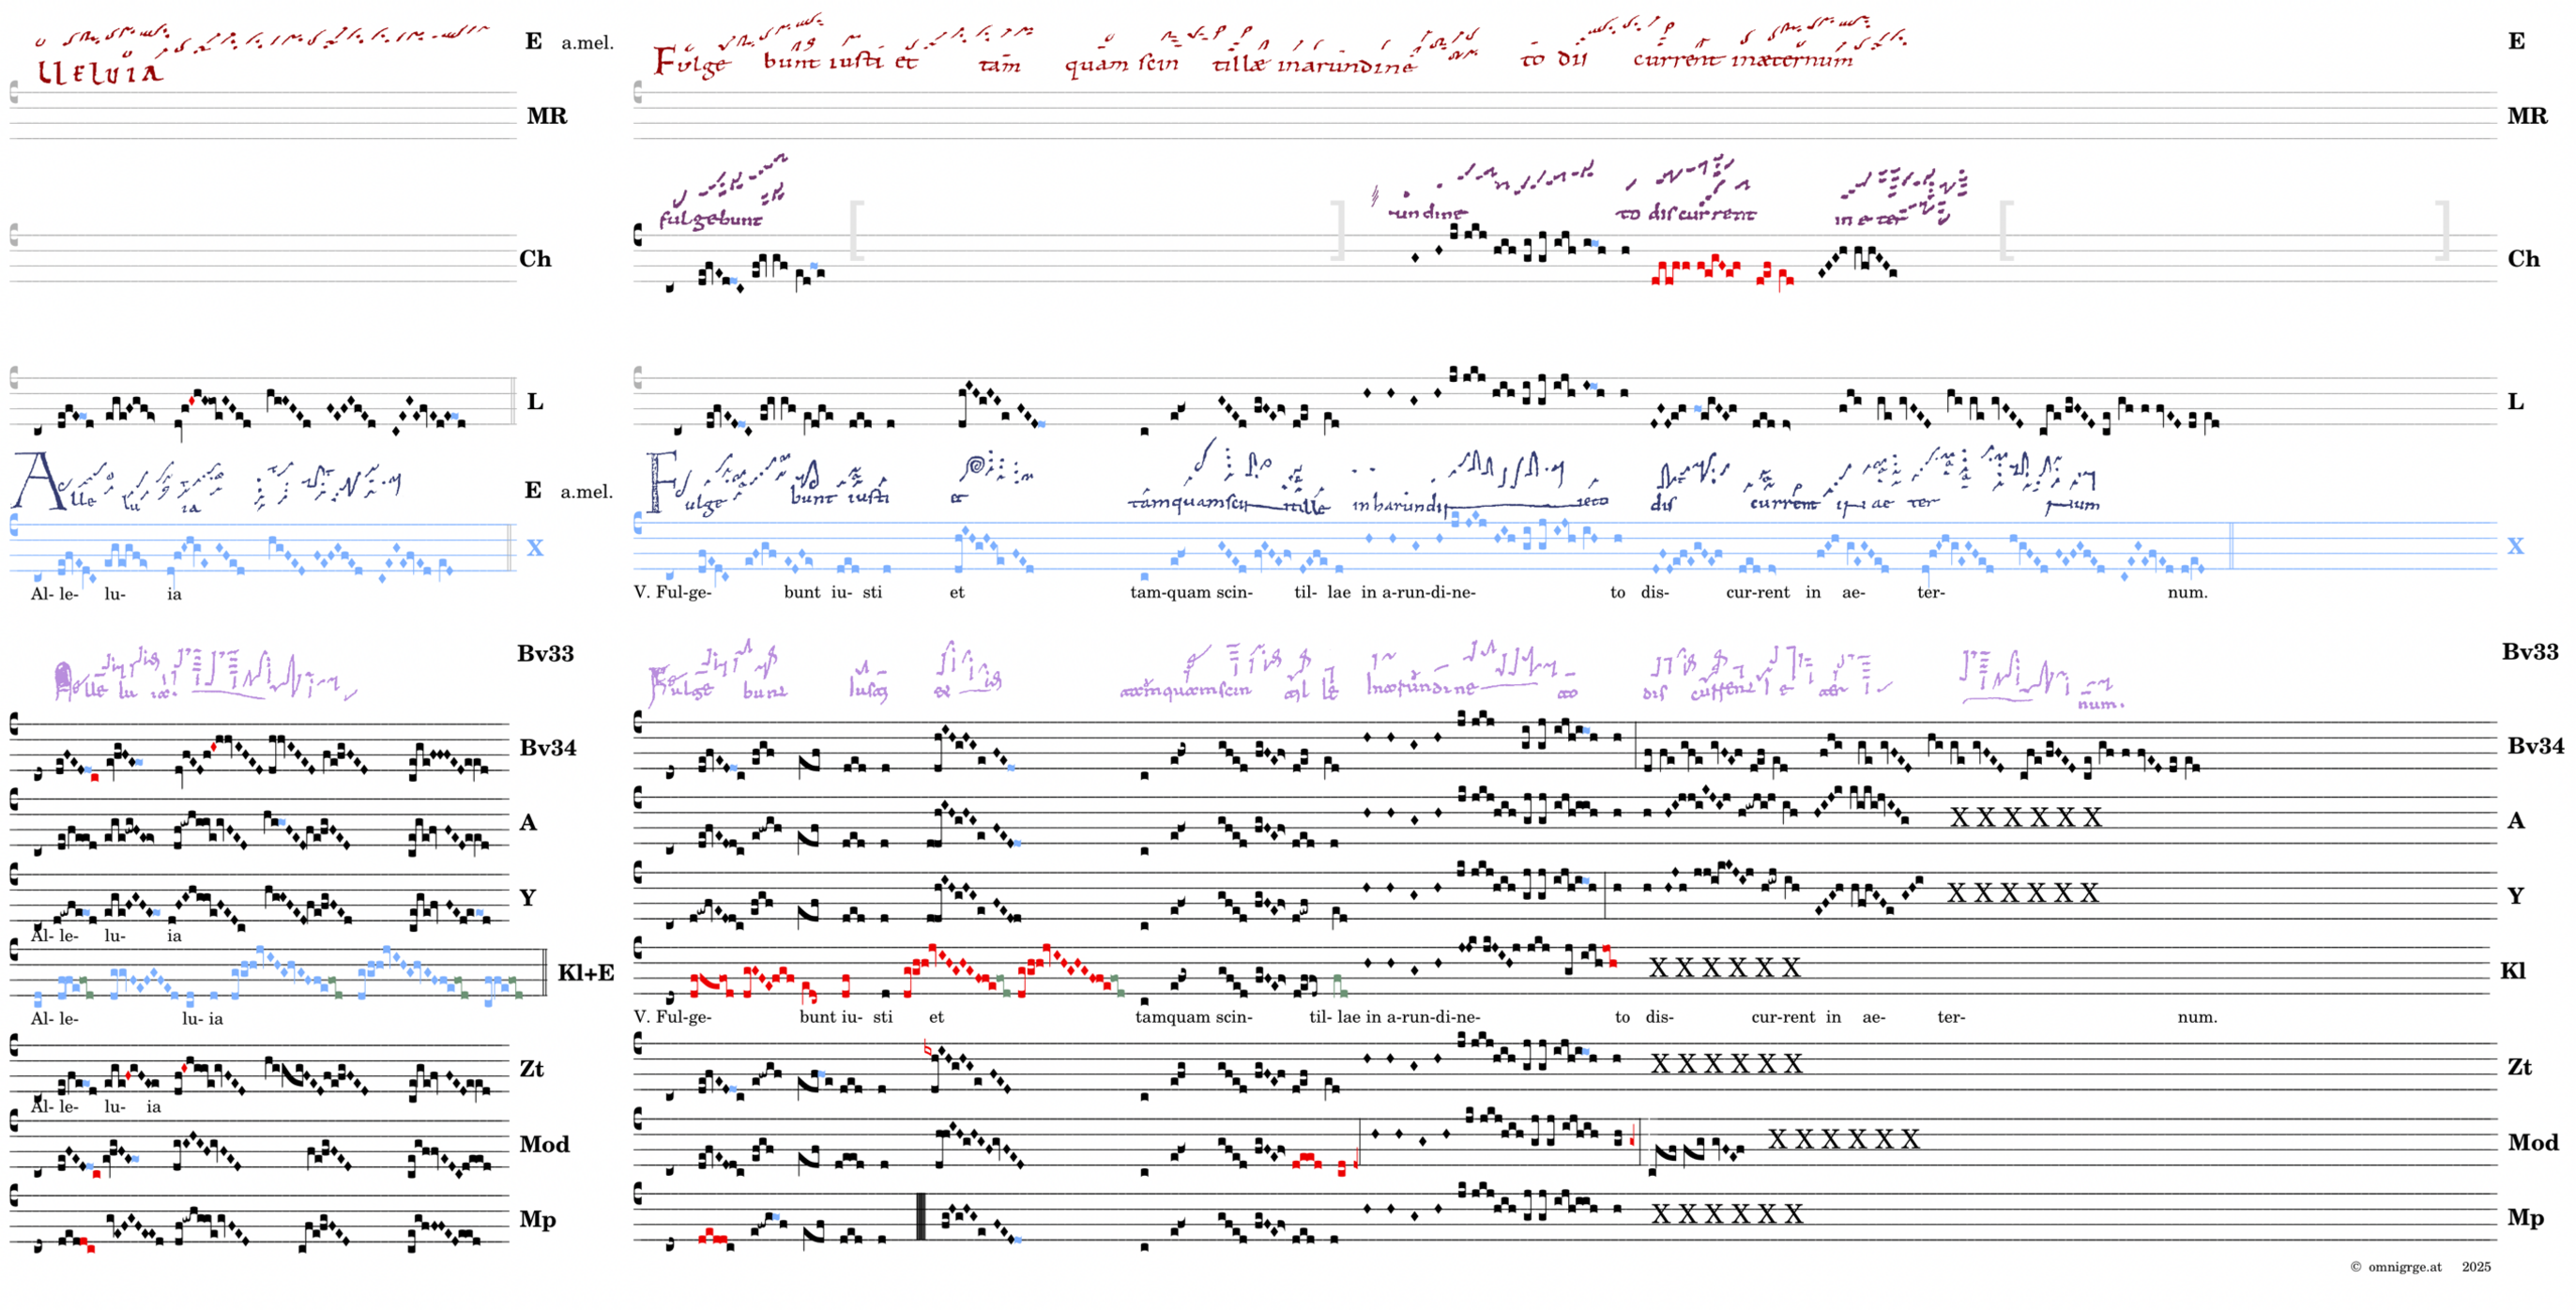 E a.mel. E
lleluia Fulge bunt iusti et tam quam scin tillæ inarundine to dis current inæternum
MR MR
fulgebunt undine to discurrent in e ter
Ch Ch
L L
E a.mel.
Alle lu ia Fulge bunt iusti et tamquamscin tille inharundi to dis current in ae ter num
X X
Al- le- lu- ia V. Ful-ge- bunt iu- sti et tam-quam scin- til- lae in a-run-di-ne- to dis- cur-rent in ae- ter- num.
Bv33 Bv33
num.
Bv34 Bv34
A X X X X X X A
Y X X X X X X Y
Al- le- lu- ia
Kl+E X X X X X X Kl
Al- le- lu- ia V. Ful-ge- bunt iu- sti et tamquam scin- til- lae in a-run-di-ne- to dis- cur-rent in ae- ter- num.
Zt X X X X X X Zt
Al- le- lu- ia
Mod X X X X X X Mod
Mp X X X X X X Mp
© omnigrge.at 2025